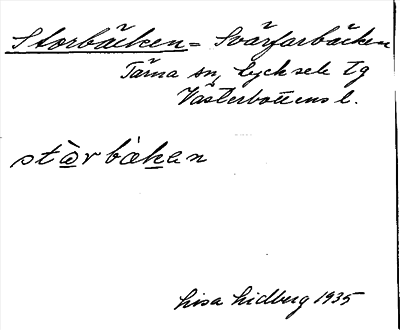 Storbäcken = Svärfarbäcken
Tärna sn, Lycksele tg
Västerbottens l.
stòrbäkan
Lisa Lidberg 1935